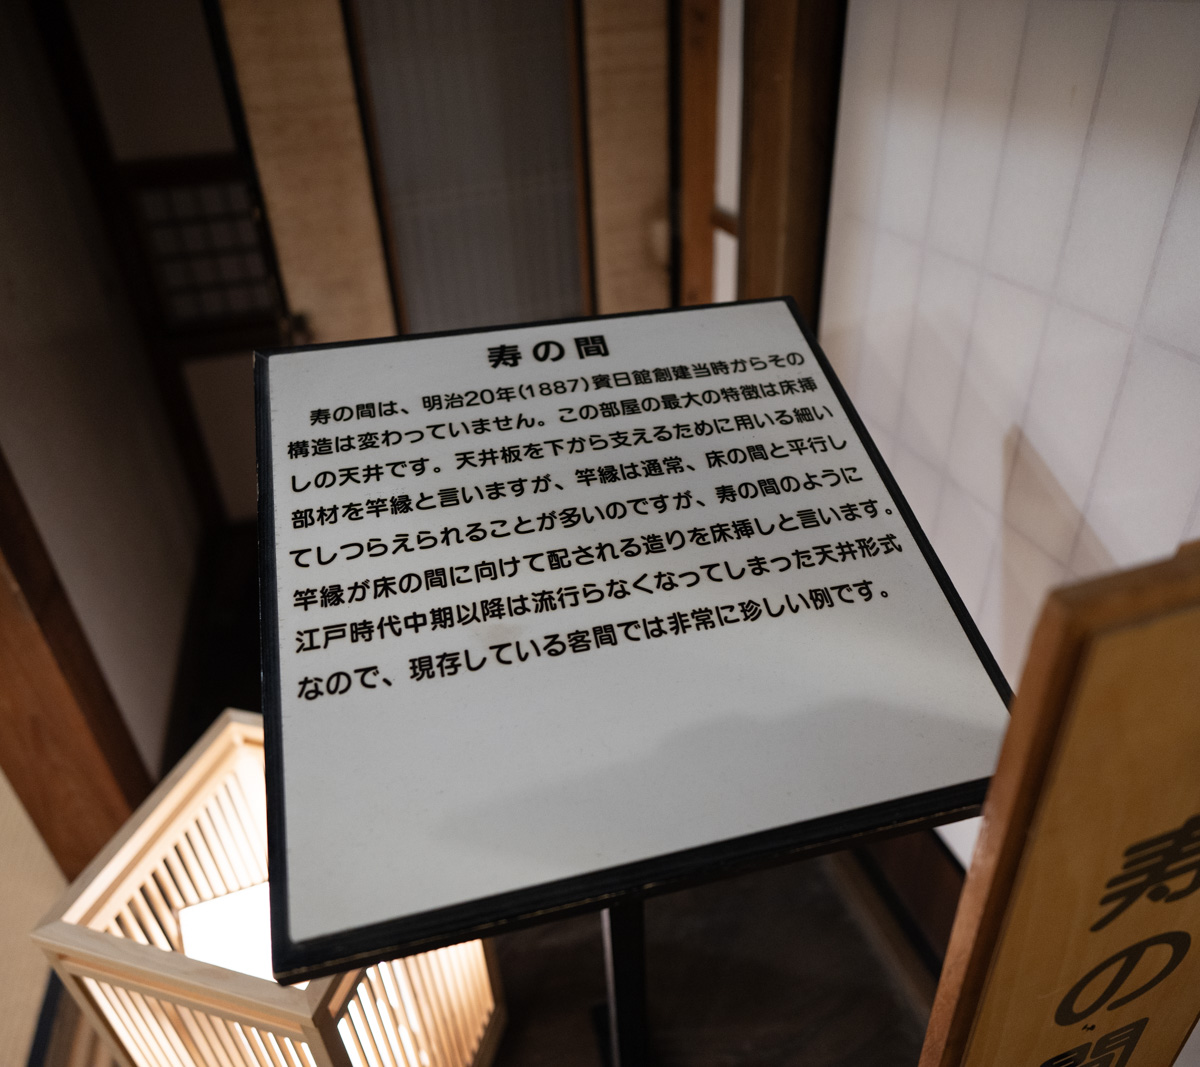 寿の間
寿の間は、明治20年(1887)賓日館創建当時からその
構造は変わっていません。この部屋の最大の特徴は床挿
しの天井です。天井板を下から支えるために用いる細い
部材を竿縁と言いますが、竿縁は通常、床の間と平行し
てしつらえられることが多いのですが、寿の間のように
竿縁が床の間に向けて配される造りを床挿しと言います。
江戸時代中期以降は流行らなくなってしまった天井形式
なので、現存している客間では非常に珍しい例です。
寿の間